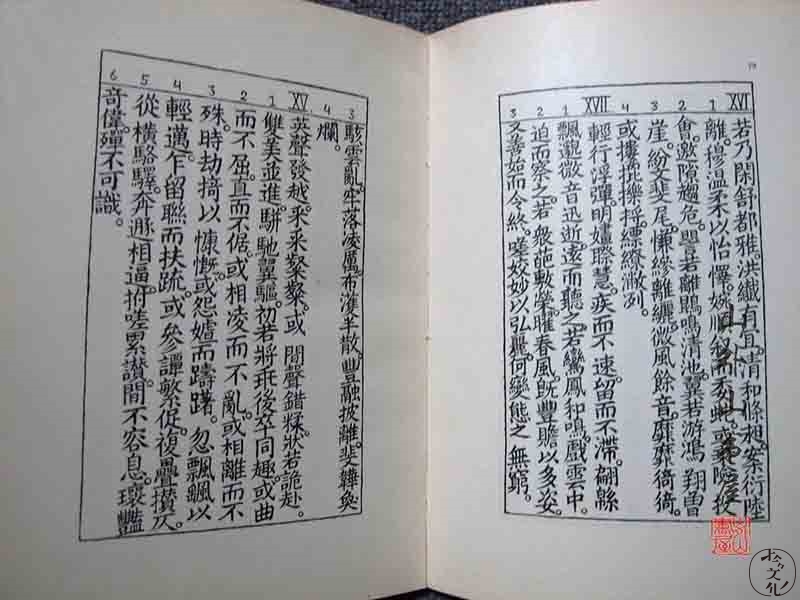 3 4 XV 1 2 3 4 5 6
駭雲亂。牢落凌厲。布濩半散。豐融披離。斐韡奐
爛。
英聲發越。采采粲粲。或閒聲錯糅。狀若詭赴。
雙美並進。駢馳翼驅。初若將乖後卒同趣。或曲
而不屈。直而不倨。或相凌而不亂。或相離而不
殊。時劫掎以慷慨。或怨㜘而躊躇。忽飄颻以
輕邁。乍留聯而扶疏。或參譚繁促。複疊攢仄。
從橫駱驛。奔遯相逼。拊嗟累讚。閒不容息。瓌豔
奇偉。殫不可識。
XVI 1 2 3 4 XVII 1 2 3
若乃閑舒都雅。洪纖有宜。清和條昶。案衍陸
離。穆溫柔以怡懌。婉順叙而委虵。或乘險投
會。邀隙趨危。嚶若離鵾鳴清池。翼若游鴻翔曾
崖。紛文斐尾。慊縿離纚。微風餘音。靡靡猗猗。
或摟㧙擽捋。縹繚潎洌。
輕行浮彈。明嫿䁙慧。疾而不速。留而不滯。翩緜
飄邈。微音迅逝。遠而聽之。若鸞鳳和鳴戲雲中。
迫而察之。若衆葩敷榮曜春風。旣豐贍以多姿。
又善始而令終。嗟姣妙以弘麗。何變態之無窮。